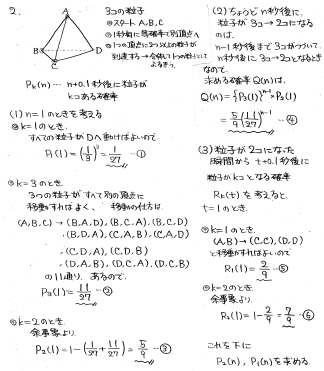 2.
A
B
C
D
3コの粒子
◎スタート A,B,C
◎1秒毎に等確率で別頂点へ
◎1つの頂点に2つ以上の粒子が
到達する→合体して1つの粒子として
Pk(n)… n+0.1秒後に粒子が
kコある確率
(1) n=1のときを考える
◎k=1のとき.
すべての粒子がDへ動けばよいので
P₁(1)=(1/3)³=1/27 ―①
◎k=3のとき.
3つの粒子がすべて別の頂点に
移動すればよく、移動の仕方は
(A,B,C)→(B,A,D),(B,C,A),(B,C,D)
,(B,D,A),(C,A,B),(C,A,D)
,(C,D,A),(C,D,B)
,(D,A,B),(D,C,A),(D,C,B)
の11通り あるので.
P₃(1)=11/27 ―②
◎k=2のとき.
余事象より.
P₂(1)=1-(1/27+11/27)=5/9 ―③
(2) ちょうどn秒後に.
粒子が3コ→2コになる
のは.
n-1秒後まで3コがつづいて.
n秒後に3コ→2コとなるとき
なので.
求める確率Q(n)は.
Q(n)={P₃(1)}ⁿ⁻¹×P₂(1)
=5/9(11/27)ⁿ⁻¹ ―④
(3) 粒子が2コになった
瞬間から t+0.1秒後に
粒子がkコとなる確率
Rk(t)を考えると.
t=1のとき.
◎k=1のとき.
(A,B)→(C,C),(D,D)
と移動すればよいので
R₁(1)=2/9 ―⑤
◎k=2のとき
余事象より.
R₂(1)=1-2/9=7/9 ―⑥
これを下に
P₂(n),P₁(n)を求める.